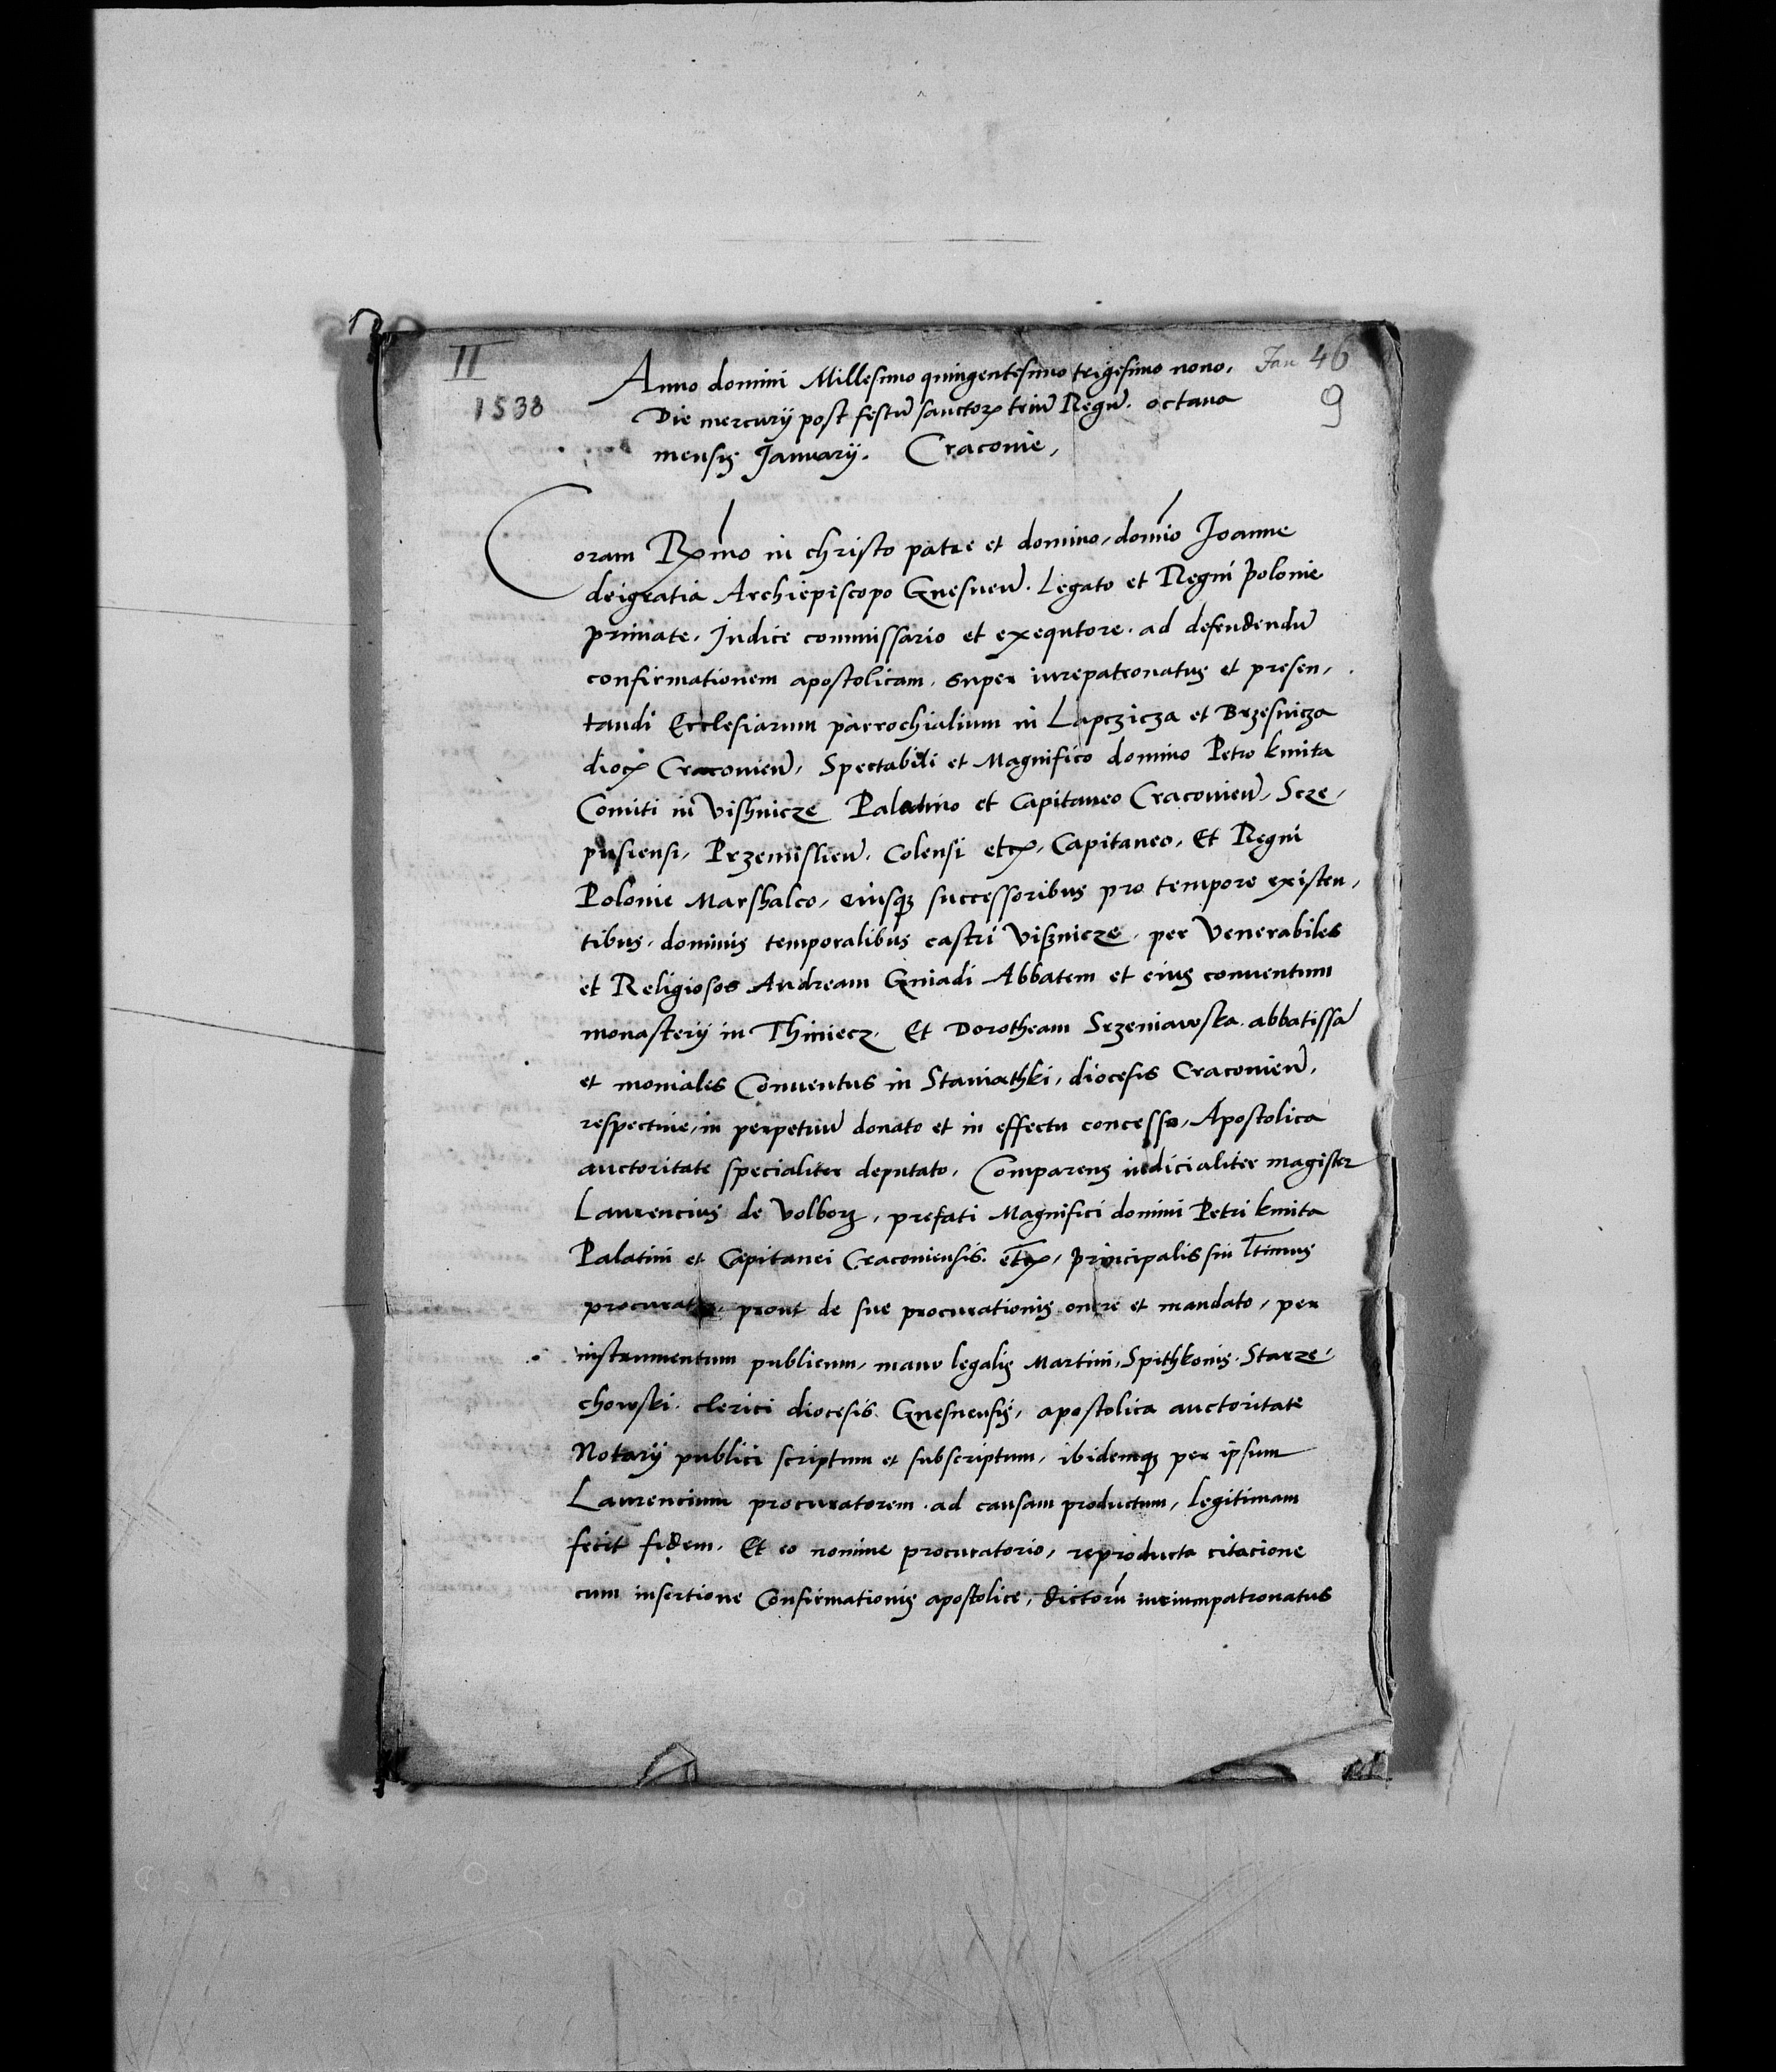 II
Jan 46
1538
9
Anno domini Millesimo quingentesimo trigesimo nono,
Die mercurij post festū sanctoꝝ triū Regū. octava
mensis Januarij. Craconie,
Coram Rx̄mo in christo patre et domino, domīo Joanne
deigratia Archiepiscopo Gnesnen̄. Legato et Regni polonie
primate, Judice commissario et exequtore. ad defendendū
confirmationem apostolicam. super iurepatronatus et presen,
tandi Ecclesiarum parrochialium in Lapczicza et Brzesnicza
dioc̄ Craconien̄, Spectabili et Magnifico domino Petro kmita
Comiti in Visħnicze Palatino et Capitaneo Craconien̄, Scze,
pusiensi, Przemislien̄. Colensi etc̄, Capitaneo, Et Regni
Polonie Marshalco, eiusqꝫ successoribus pro tempore existen,
tibus, dominis temporalibus castri Vißnicze, per Venerabiles
et Religiosos Andream Gniadi Abbatem et eius conuentum
monasterij in Thiniecz. Et Dorotheam Srzeniawska. abbatissā
et moniales Conuentus in Staniathki, diocesis Craconien̄,
respectiue, in perpetuū donato et in effectu concesso, Apostolica
auctoritate specialiter deputato, Comparens iudicialiter magister
Laurencius de Volborz, prefati Magnifici domini Petri kmita
Palatini et Capitanei Craconiensis. etc̄, principalis sui lt̄imus
procurator, prout de sue procurationis onere et mandato, per
instrumentum publicum, manu legalis Martini, Spithkonis. Starze,
chowski. clerici diocesis. Gnesnensis, apostolica auctoritate
Notarij publici scriptum et subscriptum, ibidemqꝫ per ipsum
Laurencium procuratorem. ad causam productum, legitimam
fecit fidem. Et eo nomine procuratorio, reproducta citacione
cum insertione Confirmationis apostolice, dictorū iuriumpatronatus